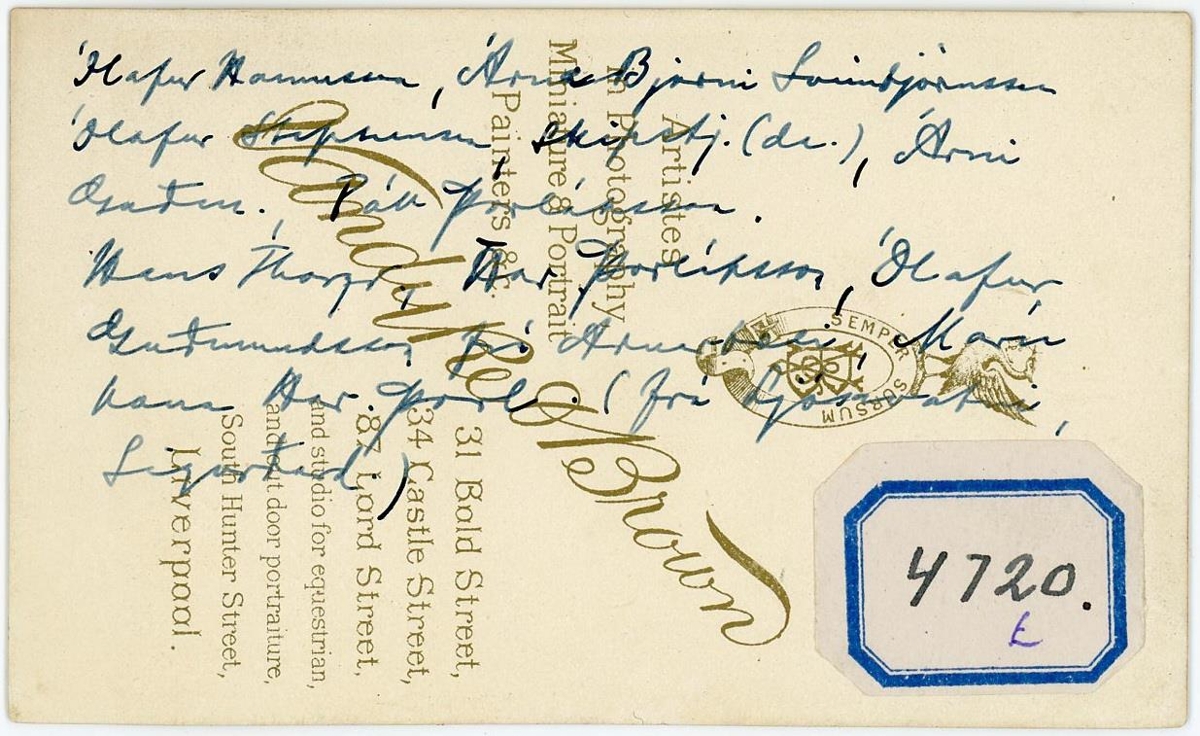 Ólafur Hannesson, Árni Bjarni Sveinbjörnsson
Ólafur Stephensen, skipstj. (dr.), Árni
Guðm., Páll Þorláksson.
Hans Thorgr., Har. Þorláksson, Ólafur
Guðmundsson frá Arnarbæli, María
kona Har. Þorl. (frá
Sigurðard.)
Vandyke & Brown
Artistes
in Photography
Miniature & Portrait
Painters &c.
SEMPER SURSUM
31 Bold Street,
34 Castle Street,
87 Lord Street,
and studio for equestrian,
and out door portraiture,
South Hunter Street,
Liverpool.
4720.
E